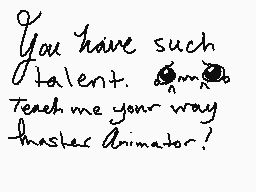 You have such
talent.
Teach me your way
Master Animator!